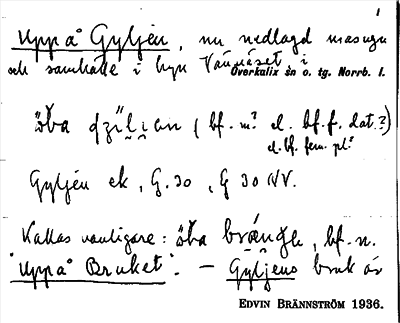 1
Uppå Gyljén, nu nedlagd masugn
och samhälle i byn Vännäset i
Överkalix sn o. tg. Norrb. l.
(bf. m? el. bf. f. dat.?)
el. bf. fem. pl?
Gyljén ek, G. 30, G 30 NV.
Kallas vanligare: bf. n.
"Uppå Bruket". — Gyljens bruk är
EDVIN BRÄNNSTRÖM 1936.